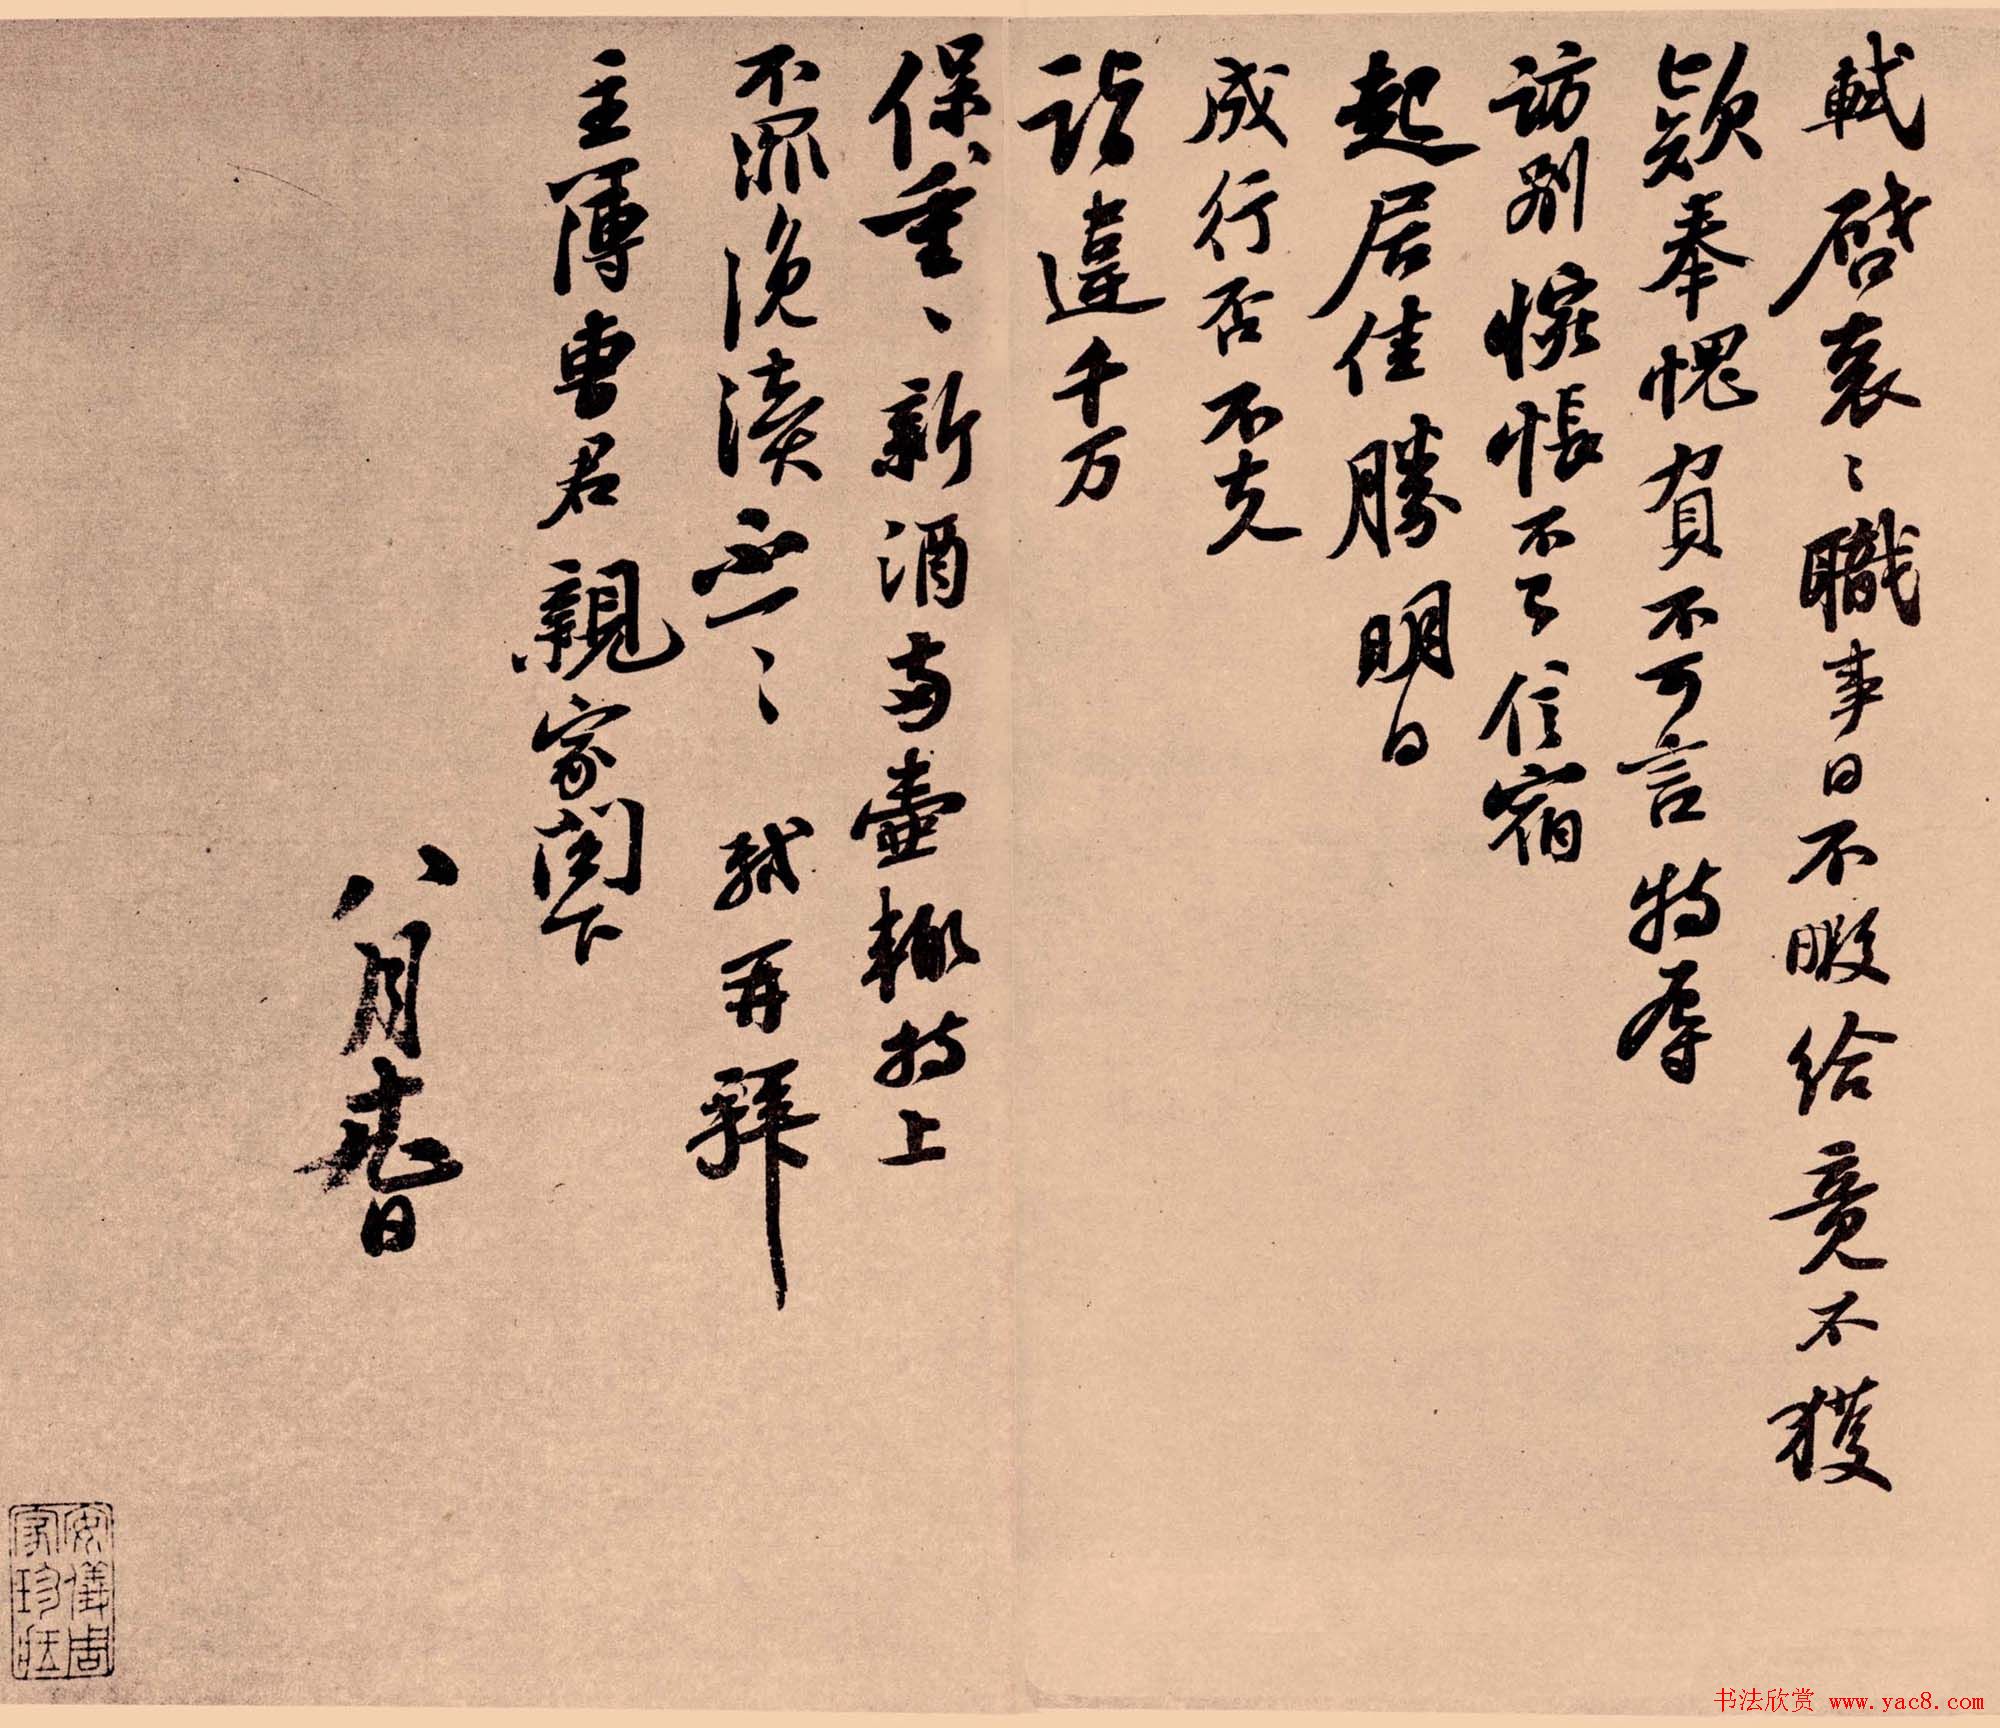 軾啓衰衰職事日不暇給竟不獲
款奉愧負不可言特辱
訪別惋悵不已信宿
起居佳勝明日
成行否不克
詣違千万
保重重新酒兩壺輙持上
不罪浼瀆不一一　軾再拜
主簿曹君親家閤下
八月十九日
安儀周
家珍藏
书法欣赏 www.yac8.com